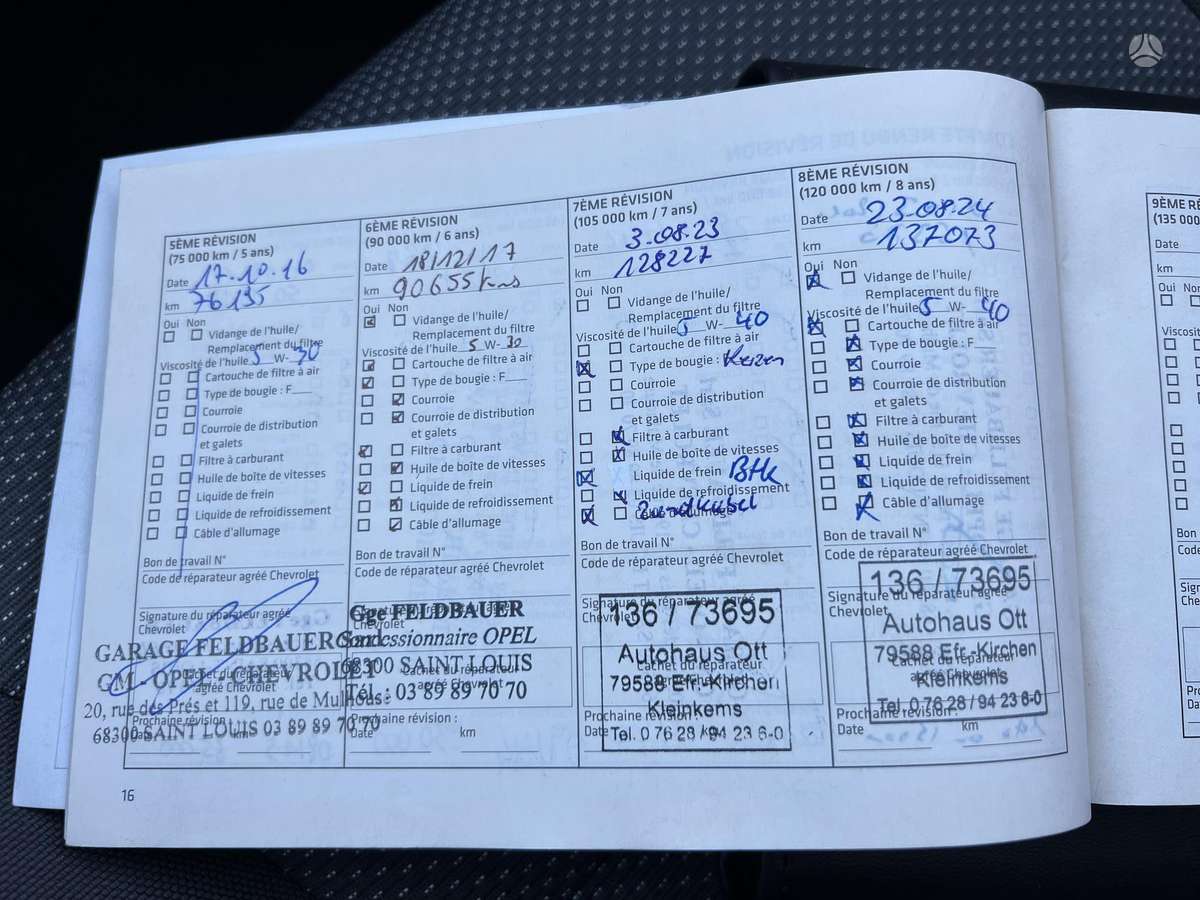 5ÈME RÉVISION
(75 000 km / 5 ans)
Date 17.10.16
km 76135
Oui Non
Vidange de l'huile/
Remplacement du filtre
Viscosité de l'huile 5 W- 30
Cartouche de filtre à air
Type de bougie : F
Courroie
Courroie de distribution
et galets
Filtre à carburant
Huile de boîte de vitesses
Liquide de frein
Liquide de refroidissement
Câble d'allumage
Bon de travail N°
Code de réparateur agréé Chevrolet
Signature du réparateur agréé
Chevrolet
GARAGE FELDBAUER
GM - OPEL - CHEVROLET
Cachet du réparateur
agréé Chevrolet
20, rue des Prés et 119, rue de Mulhouse
Prochaine révision
68300 SAINT LOUIS 03 89 89 70 70
6ÈME RÉVISION
(90 000 km / 6 ans)
Date 18/12/17
km 90655 kms
Oui Non
Vidange de l'huile/
Remplacement du filtre
Viscosité de l'huile 5 W- 30
Cartouche de filtre à air
Type de bougie : F
Courroie
Courroie de distribution
et galets
Filtre à carburant
Huile de boîte de vitesses
Liquide de frein
Liquide de refroidissement
Câble d'allumage
Bon de travail N°
Code de réparateur agréé Chevrolet
Gge FELDBAUER
Concessionnaire OPEL
68300 SAINT LOUIS
Cachet du réparateur
agréé Chevrolet
Tél : 03 89 89 70 70
Prochaine révision :
Date km
7ÈME RÉVISION
(105 000 km / 7 ans)
Date 3.08.23
km 128227
Oui Non
Vidange de l'huile/
Remplacement du filtre
Viscosité de l'huile 5 W- 40
Cartouche de filtre à air
Type de bougie : Kerzen
Courroie
Courroie de distribution
et galets
Filtre à carburant
Huile de boîte de vitesses
Liquide de frein
Liquide de refroidissement
Câble d'allumage Zündkabel
Bon de travail N°
Code de réparateur agréé Chevrolet
Signature du réparateur agréé
Chevrolet
136 / 73695
Autohaus Ott
Cachet du réparateur
agréé Chevrolet
79588 Efr.-Kirchen
Kleinkems
Prochaine révision :
Date km
Tel. 0 76 28 / 94 23 6-0
8ÈME RÉVISION
(120 000 km / 8 ans)
Date 23.08.24
km 137073
Oui Non
Vidange de l'huile/
Remplacement du filtre
Viscosité de l'huile 5 W- 40
Cartouche de filtre à air
Type de bougie : F
Courroie
Courroie de distribution
et galets
Filtre à carburant
Huile de boîte de vitesses
Liquide de frein
Liquide de refroidissement
Câble d'allumage
Bon de travail N°
Code de réparateur agréé Chevrolet
Signature du réparateur agréé
Chevrolet
136 / 73695
Autohaus Ott
79588 Efr.-Kirchen
Cachet du réparateur
agréé Chevrolet
Kleinkems
Tel. 0 76 28 / 94 23 6-0
Prochaine révision :
Date km
9ÈME RÉ
(135 000
Date
km
Oui Non
Viscosité
Bon de
Code de
Signatu
Chevrol
Prochai
Date
16